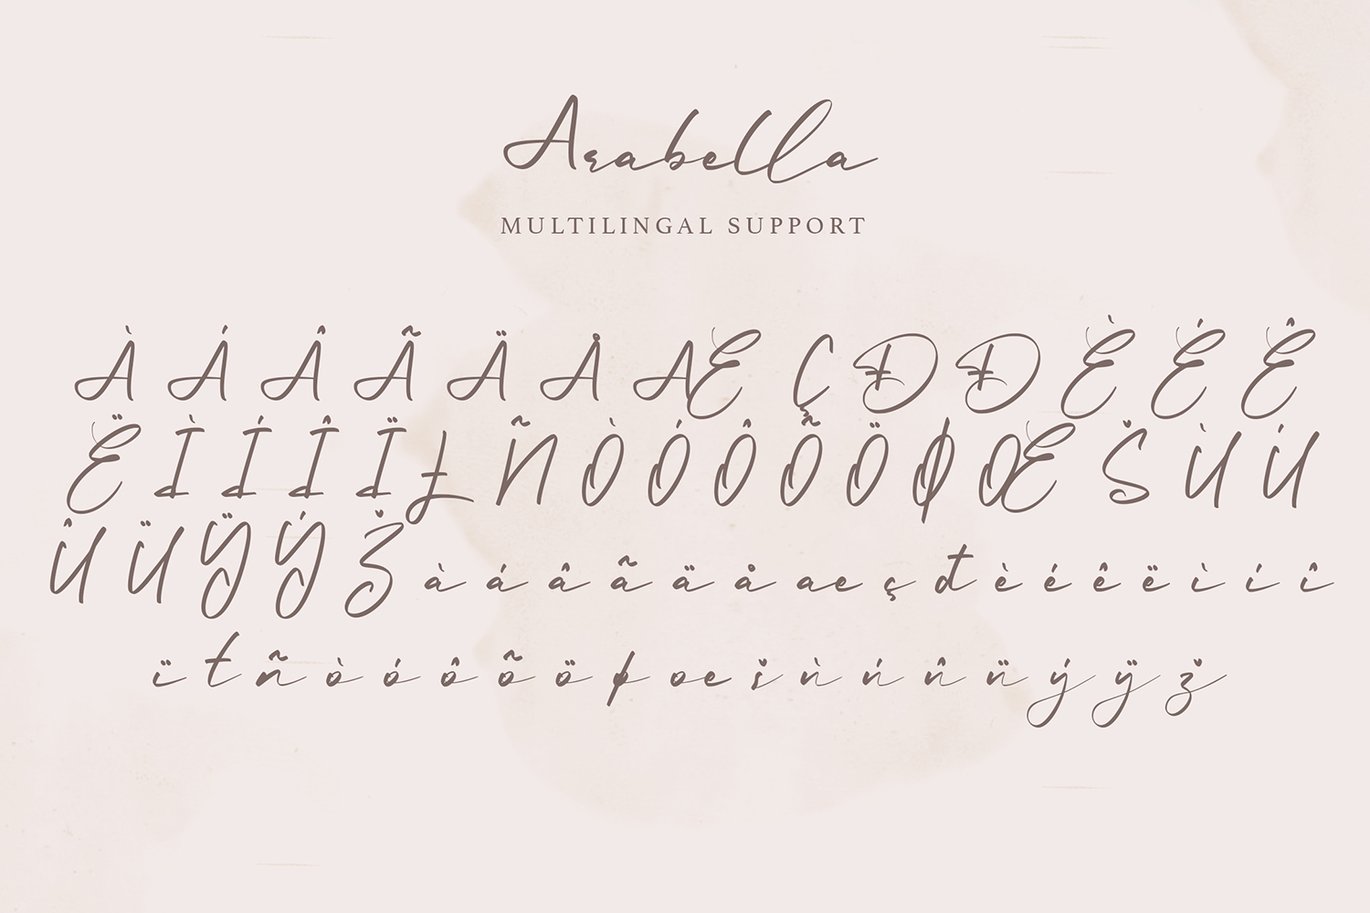 Arabella
MULTILINGAL SUPPORT
À Á Â Ã Ä Å Æ Ç Ð Đ È É Ê
Ë Ì Í Î Ï Ł Ñ Ò Ó Ô Õ Ö Ø Œ Š Ù Ú
Û Ü Ÿ Ý Ž à á â ã ä å æ ç đ è é ê ë ì í î
ï ł ñ ò ó ô õ ö ø œ š ù ú û ü ý ÿ ž